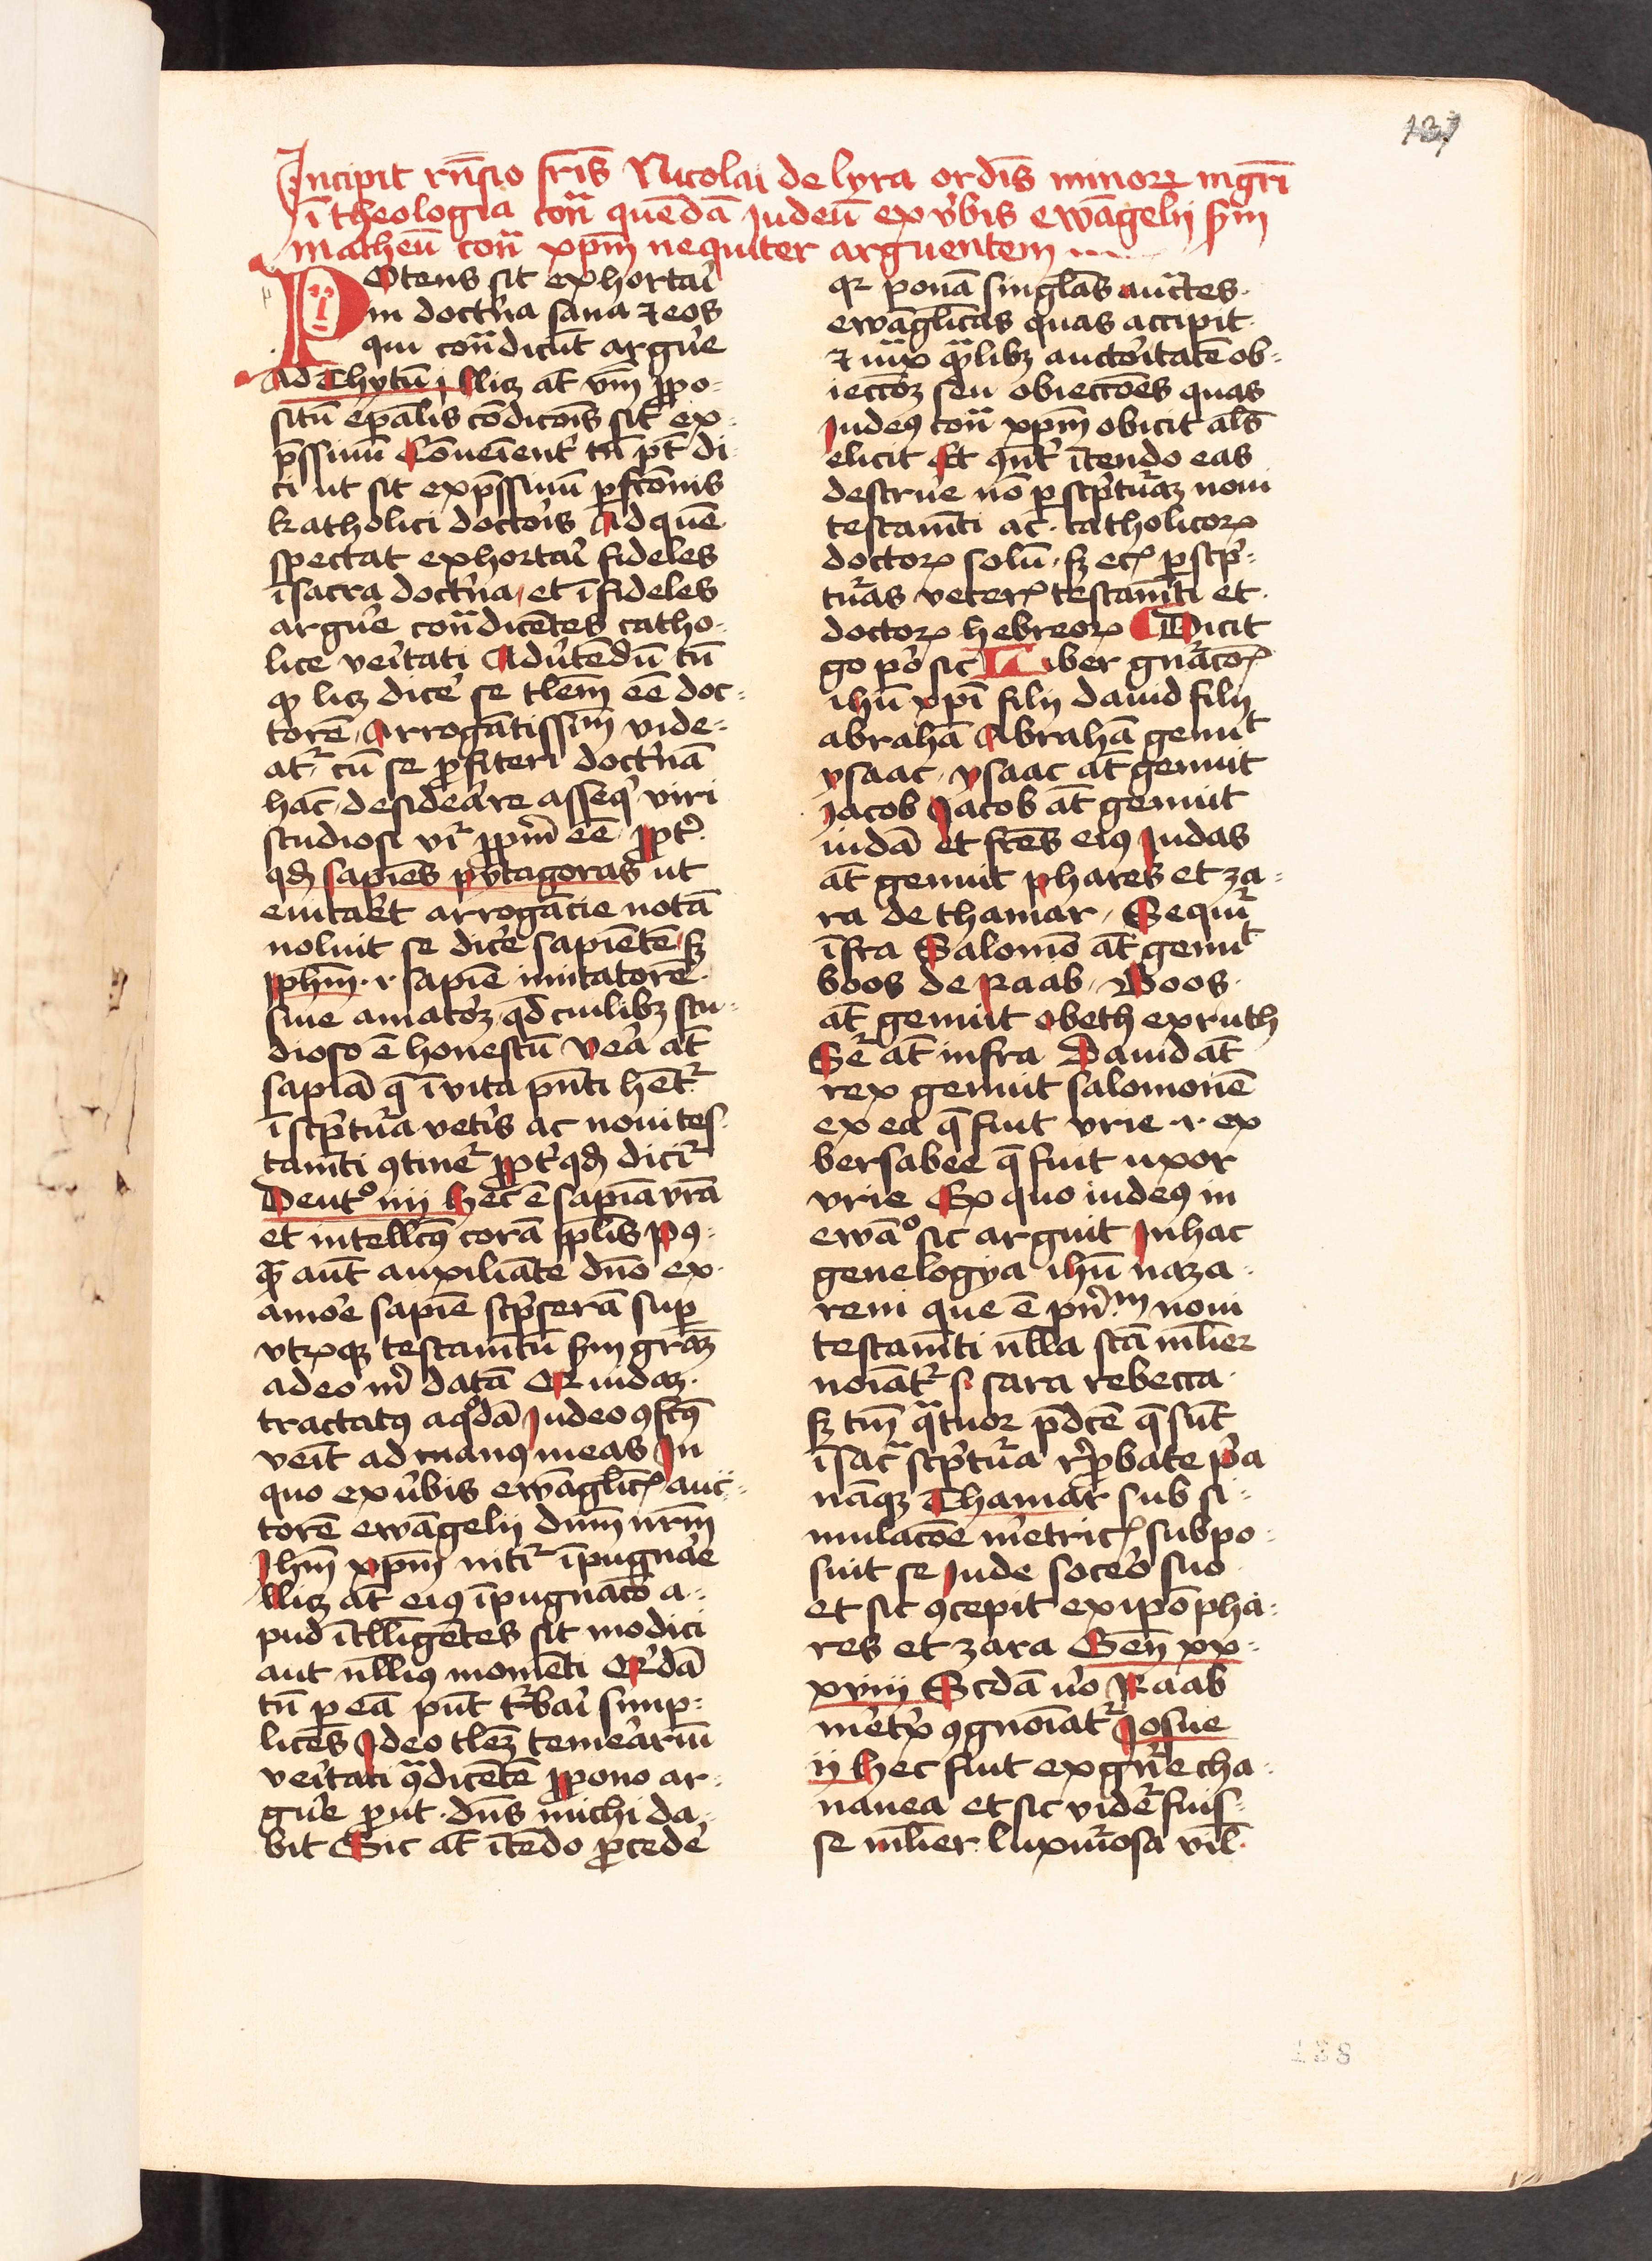 137
Incipit rn̄sio fr̄is Nicolai de lyra ordīs minorꝝ mgr̄i
ī theologia con̄ quēdā Iudeū ex v̓bis ewāgelij sm̄
matheū con̄ xpm̄ nequiter arguentem
POtens sit exhortai᷑
in doctⁱna sana ⁊ eos
qui con̄dicūt argue᷑
Ad Thytū i Llicꝫ at̄ vm̄ ꝓpo-
situm ep̄alis cōdicōis sit ex-
p̄ssiuū Cōueīent᷑ tn̄ pt̄ di-
ci ut sit exp̄ssiuū ꝑfcōnis
katholici doctoīs Ad quē
spectat exhortai᷑ fideles
ī sacra doctⁱna et īfideles
argue᷑ con̄dicētes catho-
lice vei᷑tati Adu᷑tendū tn̄
ꝙ licꝫ dice᷑ se tlēm eē doc-
torē Arrogātissim̄ vide-
at᷑ cū se ꝓfiteri doctⁱnā
hac̄ desidea᷑re asseq᷑ viri
studiosi vi᷑ ꝓpm̄ eē ꝓpt᷑
qđ sapiēs pytagoras ut
euitaēt arrogācie notā
noluit se dice᷑ sapiētē sꝫ
phm̄ .i. sapiē imitatorē
siue amatorꝫ qd̄ cuilibꝫ stu-
dioso ē honestū vea᷑ at̄
sapiā q̄ ī vita pn̄ti hēt᷑
ī scⁱptu᷑a vet᷑is ac noui tes-
tamēti ꝯtine᷑ ꝓpt᷑qđ dici᷑
Deut᷑o iiij Hec ē sapīa vr̄a
et intellcꝰ corā pplīs Pꝰ-
ꝙ̄ aut̄ auxiliāte dn̄o ex
amoe᷑ sapiē scⁱpserā suꝑ
vtrꝝqꝫ testamētū sm̄ graꝫ
adeo m᷑ datā Qꝛ iudaꝫ
tractatꝰ aqᵒdā Iudeo ꝯfcꝰ
veīt ad manꝰ meas In
quo ex u᷑bis ewāglīcꝭ auc-
torē ewāgelij dn̄m nr̄m
Ihm̄ xpm̄ niti᷑ īpugnae᷑
Llicꝫ at̄ eiꝰ īpugnacō a-
pud ītllīgētes sit modici
aut nlliꝰ momēti Qⁱdā
tn̄ ꝑ eā pn̄t t᷑bai᷑ simp-
lices Ideo tlēꝫ temea᷑riū
vei᷑tati ꝯ̄dicētē ꝓpono ar-
gue᷑ ꝓut dn̄s michi da-
bit Sic at̄ ītēdo ꝓcede᷑
qꝛ ponā singlās auctēs
ewāglīcas quas accipit
⁊ iux qᷓlibꝫ auctoi᷑tatē ob-
iectcōꝫ seu obiectcōēs quas
Iudeꝰ con̄ xpm̄ obicit als̄
elicit Et qn̄t᷑ ītendo eas
destrue᷑ nō ꝑ scⁱptu᷑aꝫ noui
testamēti ac catholicoꝝ
doctoꝝ solū sꝫ ecꝭ ꝑ scⁱp-
tu᷑as veterꝭ testamēti et
doctoꝝ hebreoꝝ Dicit
go pⁱo sic Liber gn̄acōꝭ
ihū xpī filij dauid filij
abrahā Abrahā genuit
ysaac ysaac at̄ genuit
iacob Iacob at̄ genuit
iudā et fr̄es eiꝰ Iudas
at̄ genuit phares et za-
ra de thamar Sequi᷑
īfra Salomō at̄ genuit
boos de Raab Boos
at̄ genuit obeth ex ruth
Se᷑ at̄ infra Dauid at̄
rex genuit salomonē
ex ea q̄ fuit vrie .i. ex
bersabee q̄ fuit uxor
vrie Ex quo iudeꝰ in
ewāᵒ sic arguit In hac
genelogya ihū naza-
reni que ē pn᷑ᵐ noui
testamēti nlla scā mlīer
noīat᷑ s. sara rebecca
sꝫ tm̄ qᷓtuor p̄dcē q̄ sūt
ī sacᷓ scⁱptu᷑a rⁱꝓbate pⁱa
nāqꝫ Thamar sub si-
mulacōe m᷑etricꝭ subpo-
suit se Iude soceo᷑ suo
et sic ꝯcepit ex ipō pha-
res et zara Gen̄ xx-
xviij Scdā u᷑o Raab
m᷑etⁱx ꝯgnoīat᷑ Iosue
ij Hec fuit ex gn᷑e cha-
nanea et sic vide᷑ fuis-
se mlīer luxu᷑iosa vil̄
138